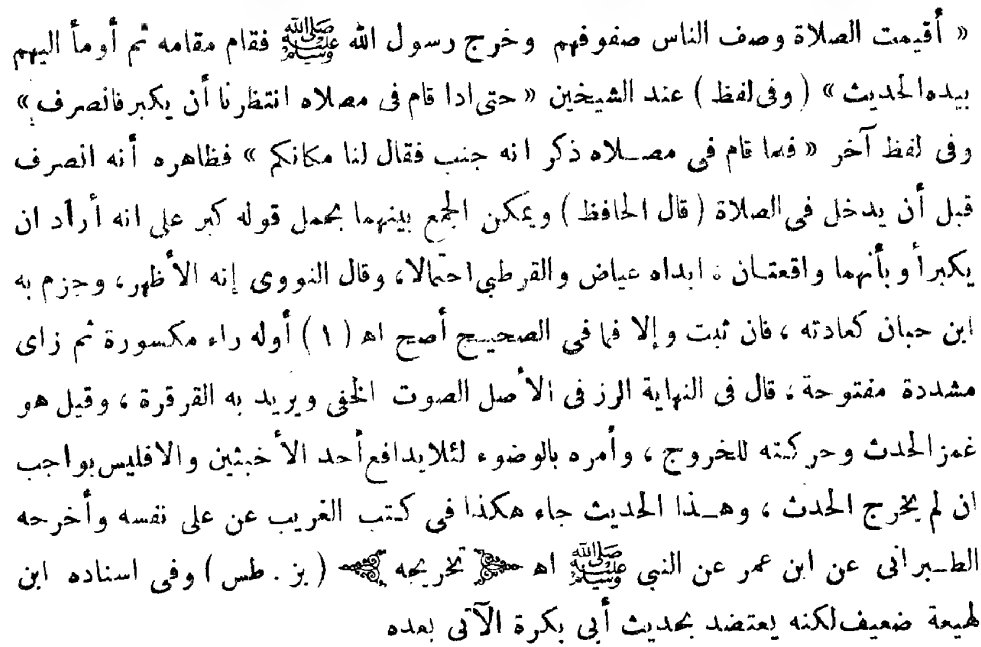 « أقيمت الصلاة وصف الناس صفوفهم وخرج رسول الله ﷺ فقام مقامه ثم أومأ اليهم
بيده الحديث » ( وفى لفظ ) عند الشيخين « حتى اذا قام فى مصلاه انتظرنا أن يكبر فانصرف »
وفى لفظ آخر « فلما قام فى مصلاه ذكر انه جنب فقال لنا مكانكم » فظاهره أنه انصرف
قبل أن يدخل فى الصلاة ( قال الحافظ ) ويمكن الجمع بينهما بحمل قوله كبر على انه أراد ان
يكبر أو بأنهما واقعتان ، ابداه عياض والقرطبى احتمالا، وقال النووى إنه الأظهر، وجزم به
ابن حبان كعادته ، فان ثبت وإلا فما فى الصحيح أصح اهـ ( ١ ) أوله راء مكسورة ثم زاى
مشددة مفتوحة ، قال فى النهاية الرز فى الأصل الصوت الخفى ويريد به القرقرة ، وقيل هو
غمز الحدث وحركته للخروج ، وأمره بالوضوء لئلا يدافع أحد الأخبثين والافليس بواجب
ان لم يخرج الحدث ، وهـذا الحديث جاء هكذا فى كتب الغريب عن على نفسه وأخرجه
الطـبرانى عن ابن عمر عن النبى ﷺ اهـ تخريجه ( بز . طس ) وفى اسناده ابن
لهيعة ضعيف لكنه يعتضد بحديث أبى بكرة الآتى بعده